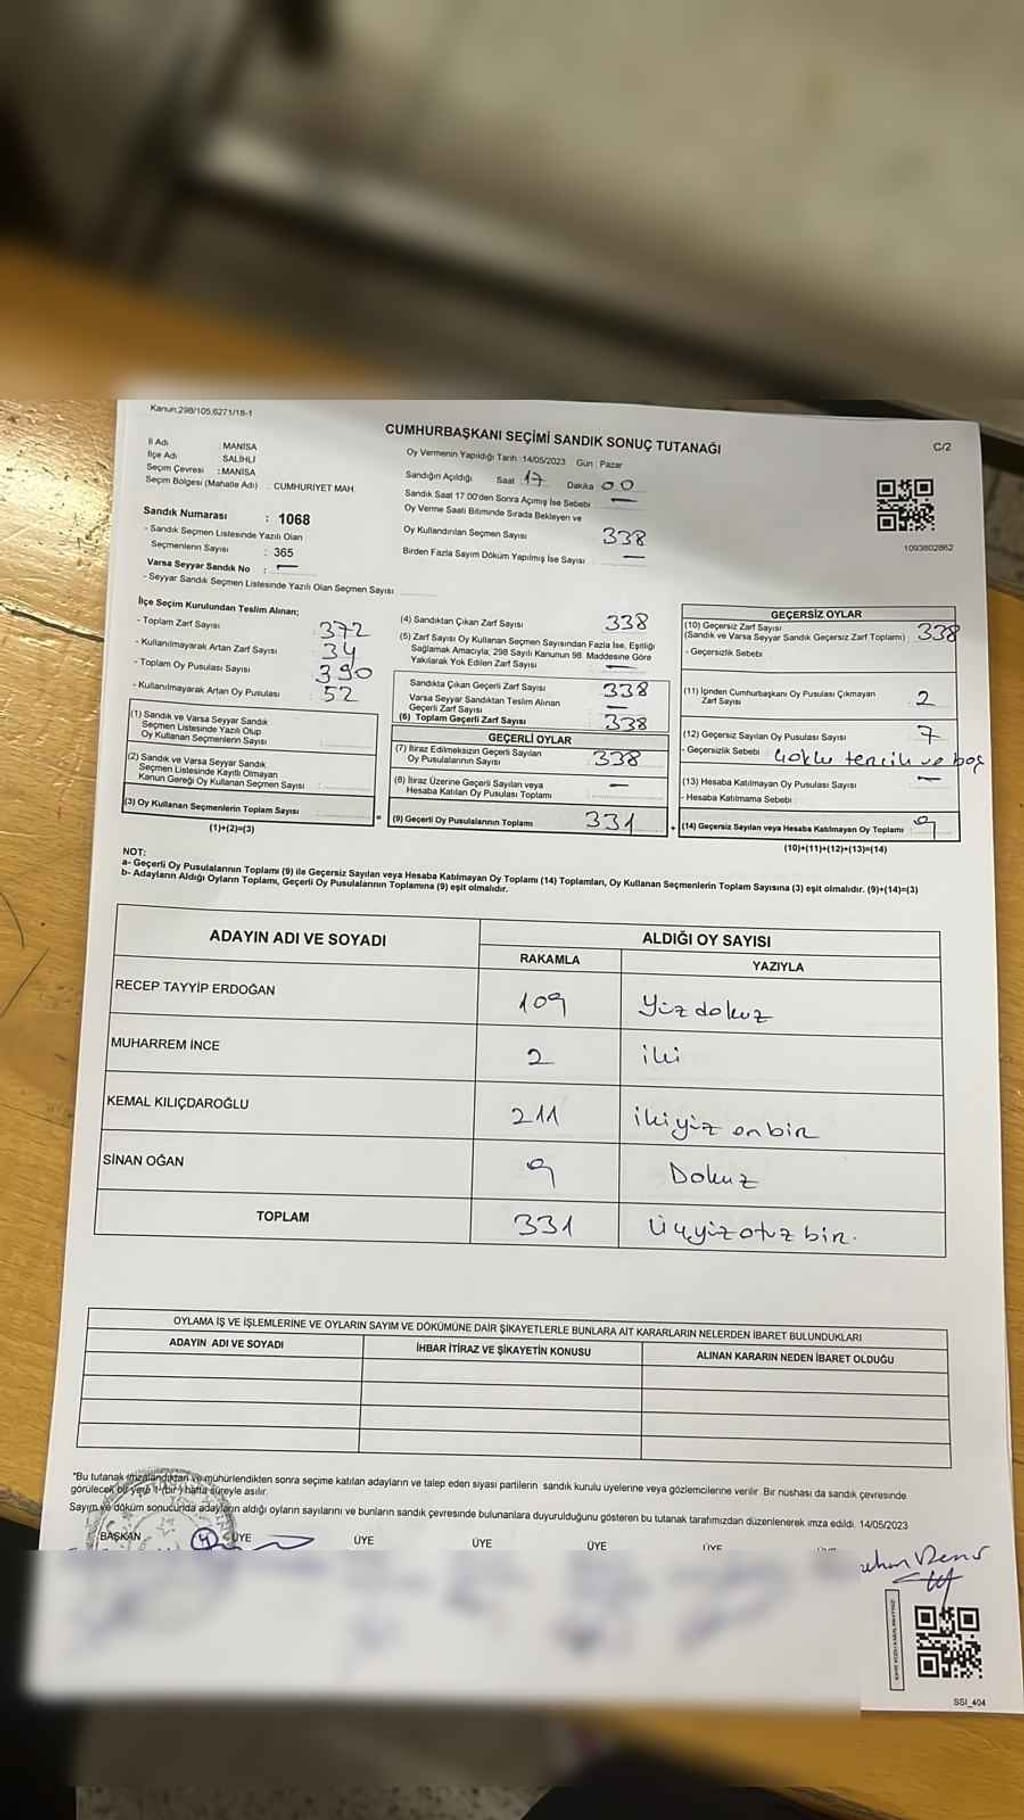 Kanun:298/105,6271/18-1
CUMHURBAŞKANI SEÇİMİ SANDIK SONUÇ TUTANAĞI
C/2
İl Adı : MANİSA
İlçe Adı : SALİHLİ
Seçim Çevresi : MANİSA
Seçim Bölgesi (Mahalle Adı) : CUMHURİYET MAH.
Oy Vermenin Yapıldığı Tarih :14/05/2023 Gün : Pazar
Sandığın Açıldığı Saat 17 Dakika 00
Sandık Saat 17.00'den Sonra Açılmış İse Sebebi —
Oy Verme Saati Bitiminde Sırada Bekleyen ve
Oy Kullandırılan Seçmen Sayısı 338
Birden Fazla Sayım Döküm Yapılmış İse Sayısı —
1093802862
Sandık Numarası : 1068
- Sandık Seçmen Listesinde Yazılı Olan
Seçmenlerin Sayısı : 365
Varsa Seyyar Sandık No : —
- Seyyar Sandık Seçmen Listesinde Yazılı Olan Seçmen Sayısı
İlçe Seçim Kurulundan Teslim Alınan;
- Toplam Zarf Sayısı 372
- Kullanılmayarak Artan Zarf Sayısı 34
- Toplam Oy Pusulası Sayısı 390
- Kullanılmayarak Artan Oy Pusulası 52
(1) Sandık ve Varsa Seyyar Sandık
Seçmen Listesinde Yazılı Olup
Oy Kullanan Seçmenlerin Sayısı
(2) Sandık ve Varsa Seyyar Sandık
Seçmen Listesinde Kayıtlı Olmayan
Kanun Gereği Oy Kullanan Seçmen Sayısı
(3) Oy Kullanan Seçmenlerin Toplam Sayısı
(1)+(2)=(3)
(4) Sandıktan Çıkan Zarf Sayısı 338
(5) Zarf Sayısı Oy Kullanan Seçmen Sayısından Fazla İse, Eşitliği
Sağlamak Amacıyla; 298 Sayılı Kanunun 98. Maddesine Göre
Yakılarak Yok Edilen Zarf Sayısı —
Sandıkta Çıkan Geçerli Zarf Sayısı 338
Varsa Seyyar Sandıktan Teslim Alınan
Geçerli Zarf Sayısı —
(6) Toplam Geçerli Zarf Sayısı 338
GEÇERLİ OYLAR
(7) İtiraz Edilmeksizin Geçerli Sayılan
Oy Pusulalarının Sayısı 338
(8) İtiraz Üzerine Geçerli Sayılan veya
Hesaba Katılan Oy Pusulası Toplamı —
(9) Geçerli Oy Pusulalarının Toplamı 331
=
+
GEÇERSİZ OYLAR
(10) Geçersiz Zarf Sayısı
(Sandık ve Varsa Seyyar Sandık Geçersiz Zarf Toplamı) 338
- Geçersizlik Sebebi
(11) İçinden Cumhurbaşkanı Oy Pusulası Çıkmayan
Zarf Sayısı 2
(12) Geçersiz Sayılan Oy Pusulası Sayısı 7
- Geçersizlik Sebebi Çoklu tercih ve boş
(13) Hesaba Katılmayan Oy Pusulası Sayısı —
- Hesaba Katılmama Sebebi
(14) Geçersiz Sayılan veya Hesaba Katılmayan Oy Toplamı 9
(10)+(11)+(12)+(13)=(14)
NOT:
a- Geçerli Oy Pusulalarının Toplamı (9) ile Geçersiz Sayılan veya Hesaba Katılmayan Oy Toplamı (14) Toplamları, Oy Kullanan Seçmenlerin Toplam Sayısına (3) eşit olmalıdır. (9)+(14)=(3)
b- Adayların Aldığı Oyların Toplamı, Geçerli Oy Pusulalarının Toplamına (9) eşit olmalıdır.
ADAYIN ADI VE SOYADI
ALDIĞI OY SAYISI
RAKAMLA YAZIYLA
RECEP TAYYİP ERDOĞAN 109 Yüzdokuz
MUHARREM İNCE 2 iki
KEMAL KILIÇDAROĞLU 211 ikiyüz onbir
SİNAN OĞAN 9 Dokuz
TOPLAM 331 Üçyüzotuz bir.
OYLAMA İŞ VE İŞLEMLERİNE VE OYLARIN SAYIM VE DÖKÜMÜNE DAİR ŞİKAYETLERLE BUNLARA AİT KARARLARIN NELERDEN İBARET BULUNDUKLARI
ADAYIN ADI VE SOYADI
İHBAR İTİRAZ VE ŞİKAYETİN KONUSU
ALINAN KARARIN NEDEN İBARET OLDUĞU
*Bu tutanak imzalandıktan ve mühürlendikten sonra seçime katılan adayların ve talep eden siyasi partilerin sandık kurulu üyelerine veya gözlemcilerine verilir. Bir nüshası da sandık çevresinde
görülecek bir yere 1 (bir) hafta süreyle asılır.
Sayım ve döküm sonucunda adayların aldığı oyların sayılarını ve bunların sandık çevresinde bulunanlara duyurulduğunu gösteren bu tutanak tarafımızdan düzenlenerek imza edildi. 14/05/2023
BAŞKAN ÜYE ÜYE ÜYE ÜYE ÜYE
SSI_404